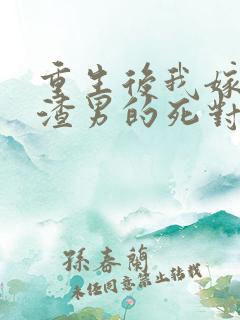 重生後我嫁
渣男的死對
孫春蘭
未经同意禁止转载